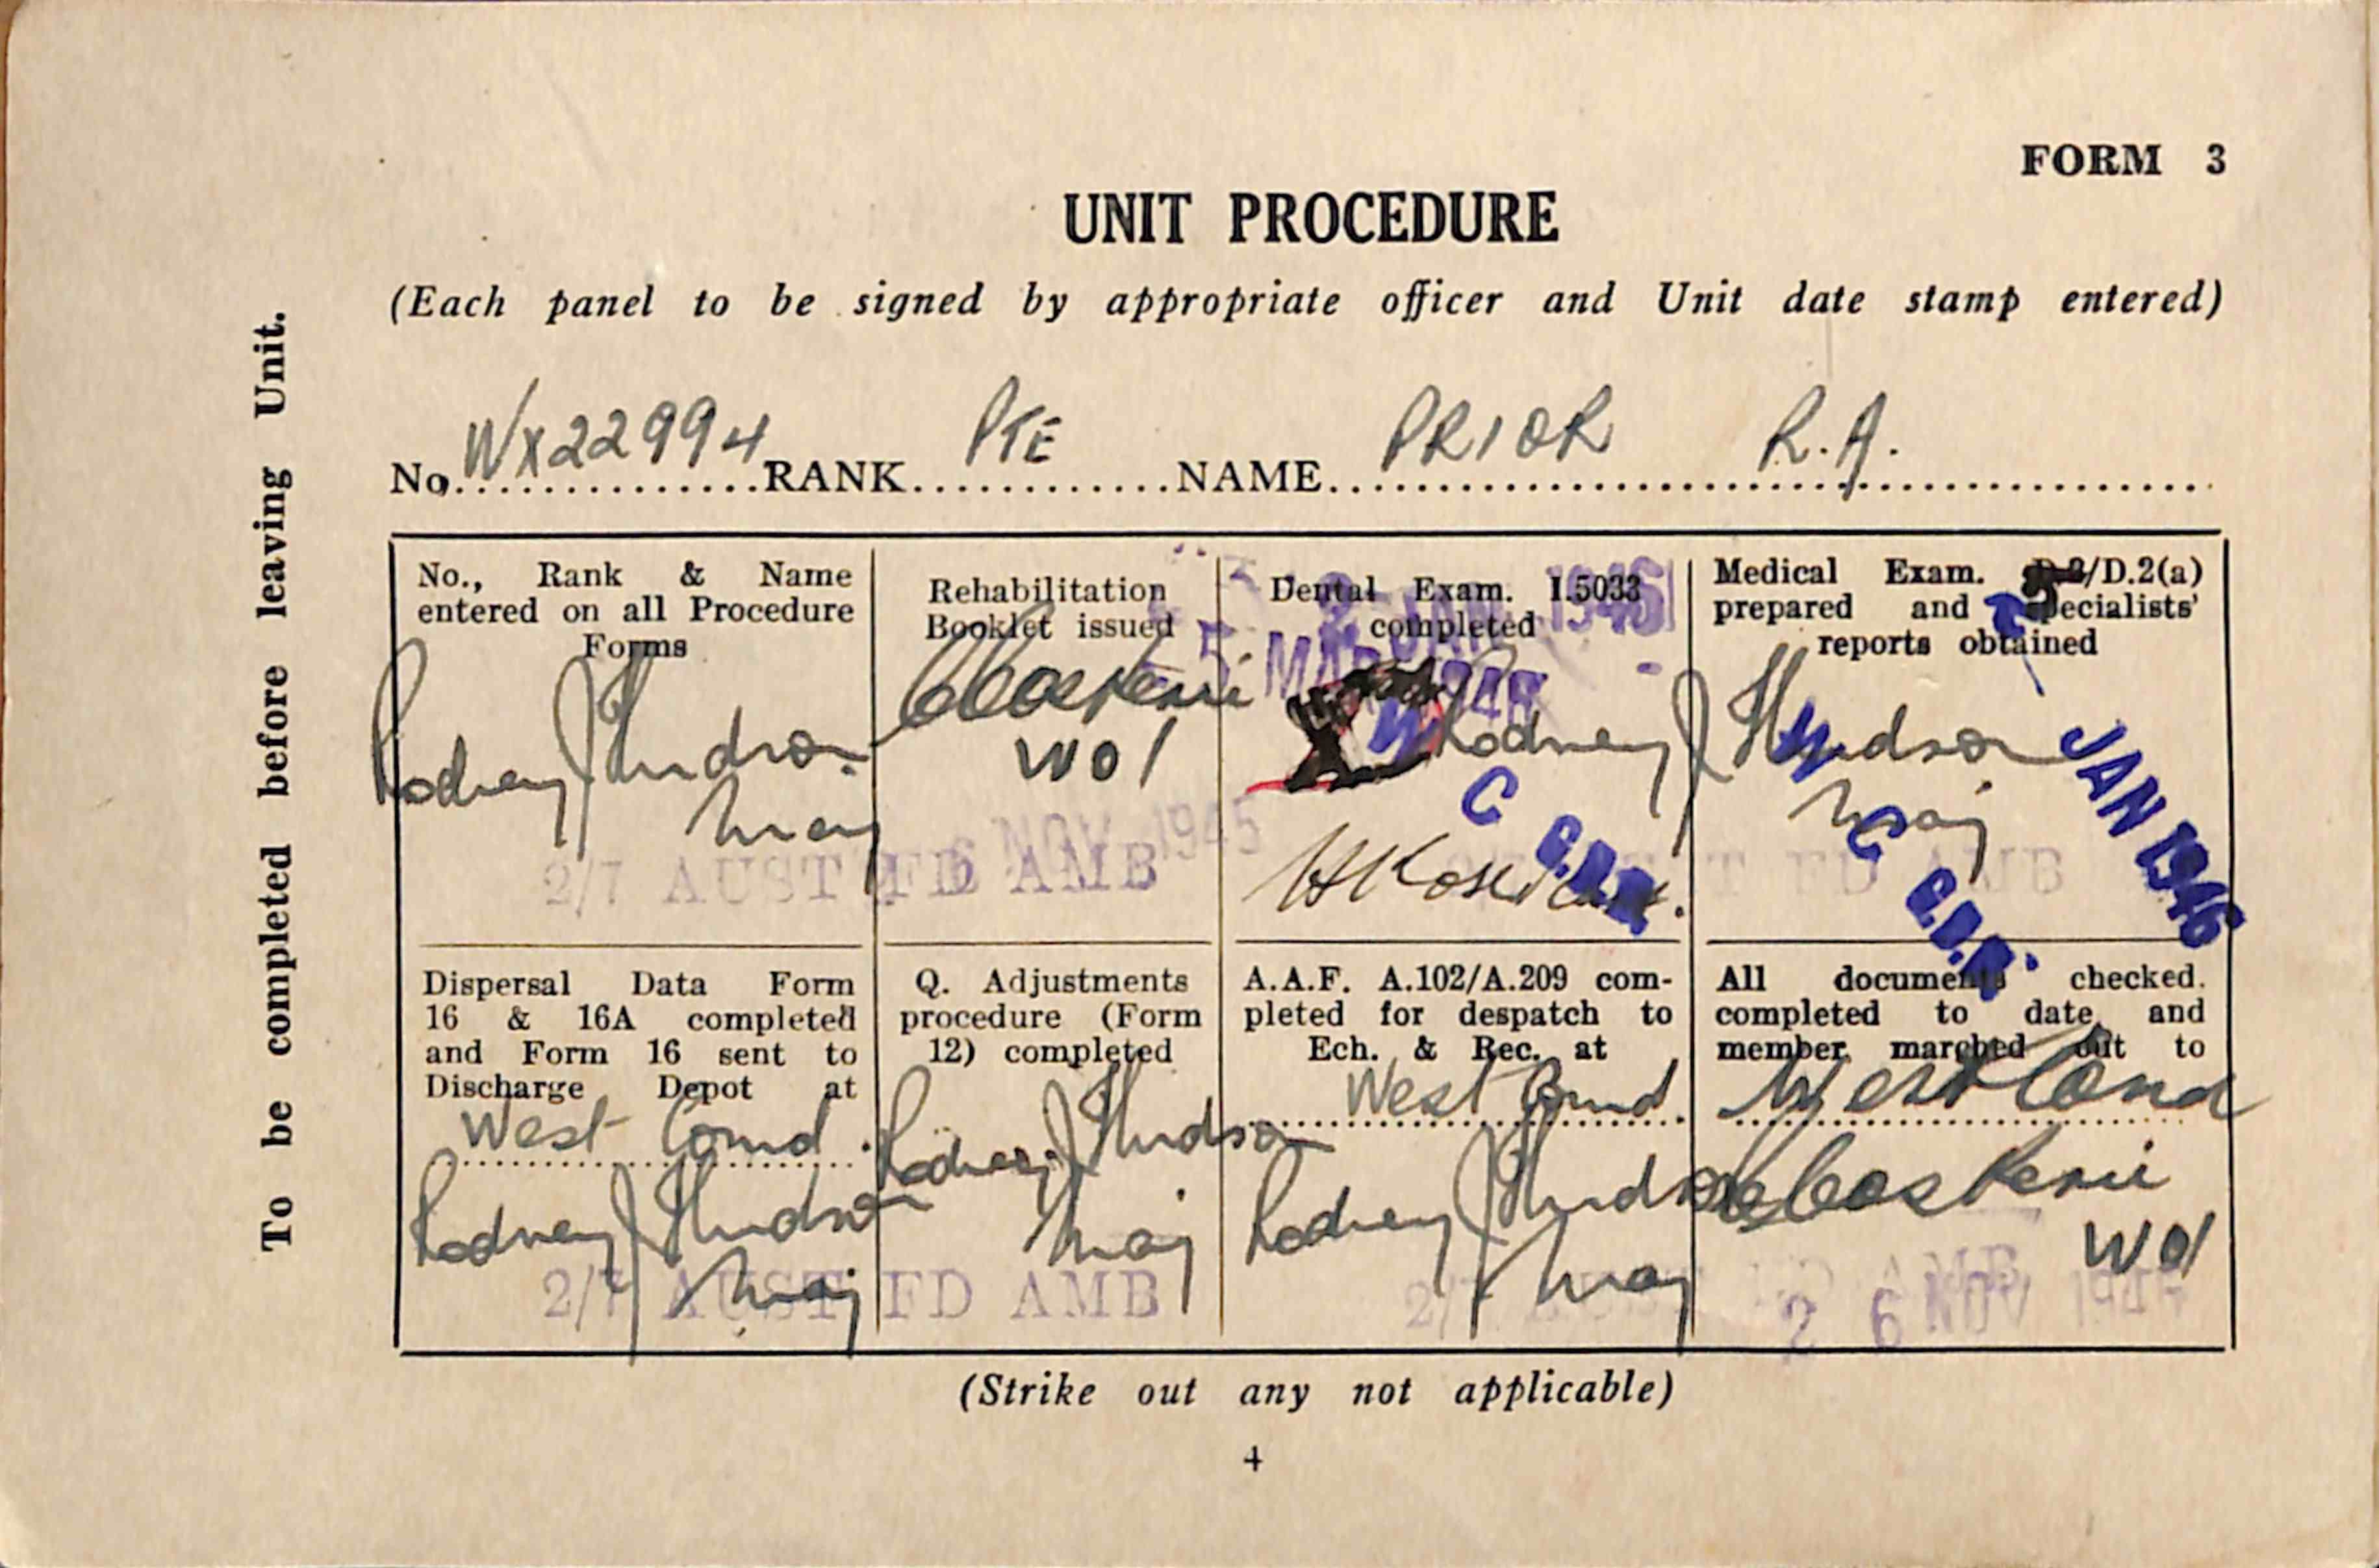 FORM 3
UNIT PROCEDURE
(Each panel to be signed by appropriate officer and Unit date stamp entered)
To be completed before leaving Unit.
No. WX22994 RANK PTE NAME PRIOR R.A.
No., Rank & Name
entered on all Procedure
Forms
Rodney J Hudson
Maj
2/7 AUST FD AMB
Rehabilitation
Booklet issued
WO1
6 NOV 1945
Dental Exam. I.5033
completed
2 JAN 1946
5 MAR 1946
Rodney J Hudson
Maj
W
C
G.D.D.
Medical Exam. D.2/D.2(a)
prepared and specialists'
reports obtained
W
C
G.D.D.
JAN 1946
FD AMB
Dispersal Data Form
16 & 16A completed
and Form 16 sent to
Discharge Depot at
West Comd.
Rodney J Hudson
Maj
2/7 AUST FD AMB
Q. Adjustments
procedure (Form
12) completed
Rodney J Hudson
Maj
A.A.F. A.102/A.209 com-
pleted for despatch to
Ech. & Rec. at
West Comd.
Rodney J Hudson
Maj
2/7 AUST FD AMB
All documents checked.
completed to date and
member marched out to
West Comd
WO1
26 NOV 1945
(Strike out any not applicable)
4